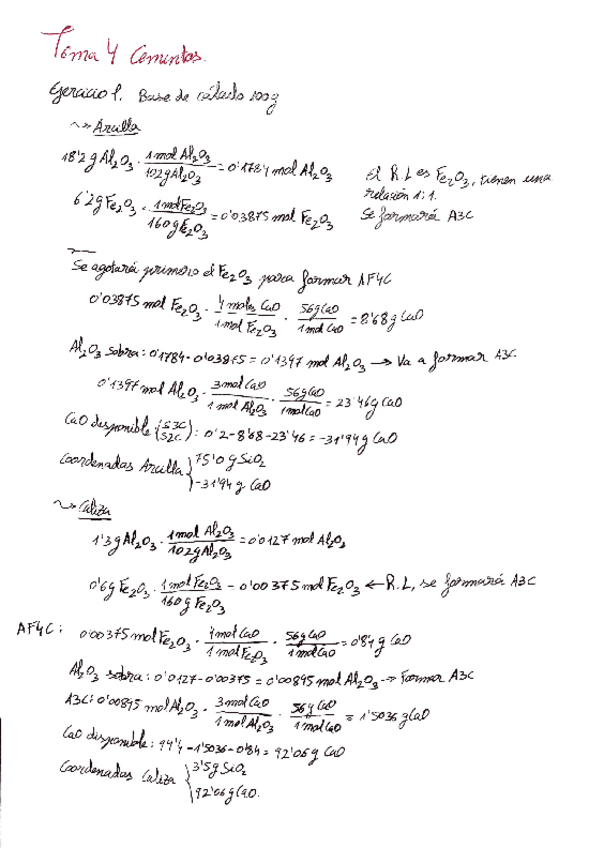 Tema 4 Cementos.
Ejercicio 1. Base de cálculo 100g
~» Arcilla
18'2 g Al₂O₃ · 1 mol Al₂O₃ / 102g Al₂O₃ = 0'1784 mol Al₂O₃
6'2g Fe₂O₃ · 1 mol Fe₂O₃ / 160g Fe₂O₃ = 0'03875 mol Fe₂O₃
El R.L es Fe₂O₃, tienen una
relación 1:1.
Se formará A3C
Se agotará primero el Fe₂O₃ para formar AF4C
0'03875 mol Fe₂O₃ · 4 moles CaO / 1 mol Fe₂O₃ · 56g CaO / 1 mol CaO = 8'68 g CaO
Al₂O₃ sobra: 0'1784-0'03875 = 0'1397 mol Al₂O₃ → Va a formar A3C
0'1397 mol Al₂O₃ · 3 mol CaO / 1 mol Al₂O₃ · 56g CaO / 1 mol CaO = 23'46g CaO
CaO disponible (S3C S2C): 0'2-8'68-23'46 = -31'94 g CaO
Coordenadas Arcilla { 75'0 g SiO₂
-31'94 g CaO
~» Caliza
1'3g Al₂O₃ · 1 mol Al₂O₃ / 102g Al₂O₃ = 0'0127 mol Al₂O₃
0'6g Fe₂O₃ · 1 mol Fe₂O₃ / 160g Fe₂O₃ = 0'00375 mol Fe₂O₃ ← R.L, se formará A3C
AF4C: 0'00375 mol Fe₂O₃ · 4 mol CaO / 1 mol Fe₂O₃ · 56g CaO / 1 mol CaO = 0'84 g CaO
Al₂O₃ sobra: 0'0127-0'00375 = 0'00895 mol Al₂O₃ → Formar A3C
A3C: 0'00895 mol Al₂O₃ · 3 mol CaO / 1 mol Al₂O₃ · 56g CaO / 1 mol CaO = 1'5036 g CaO
CaO disponible: 94'4-1'5036-0'84 = 92'06 g CaO
Coordenadas Caliza { 3'5g SiO₂
92'06g CaO.